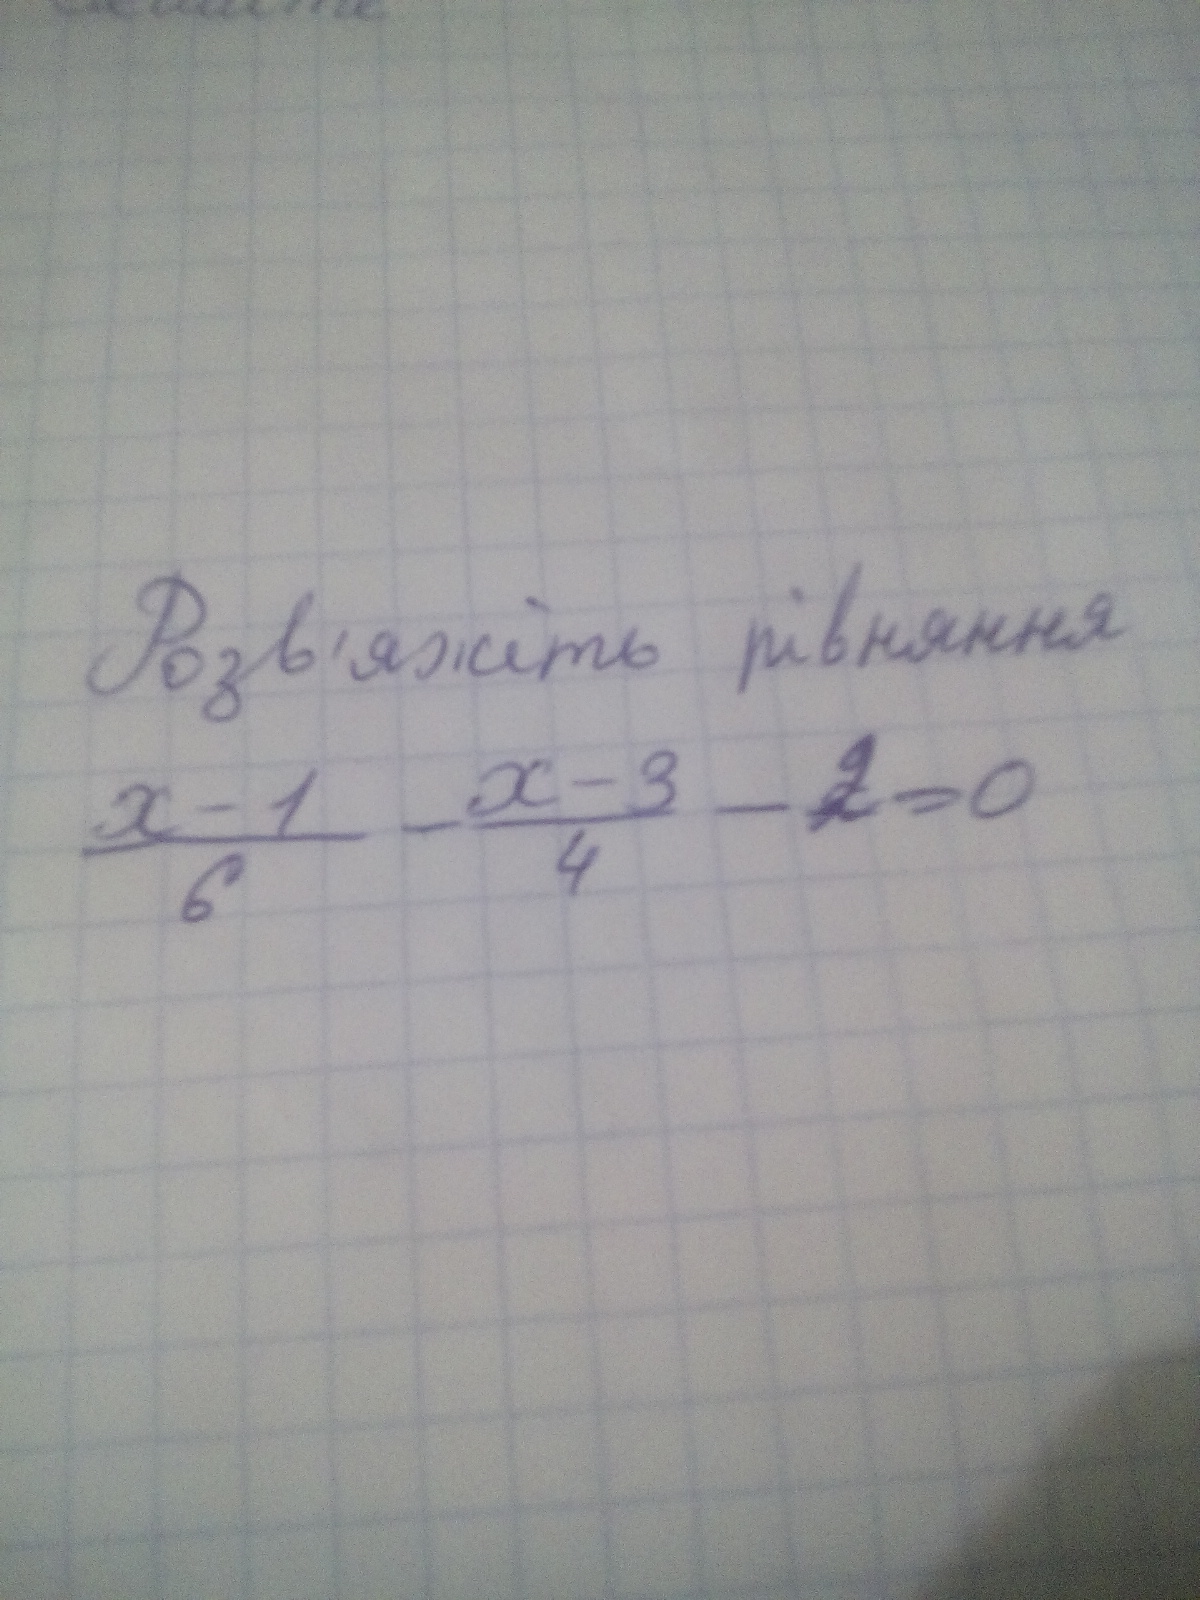 Розв'яжіть рівняння
x-1/6 - x-3/4 - 2=0